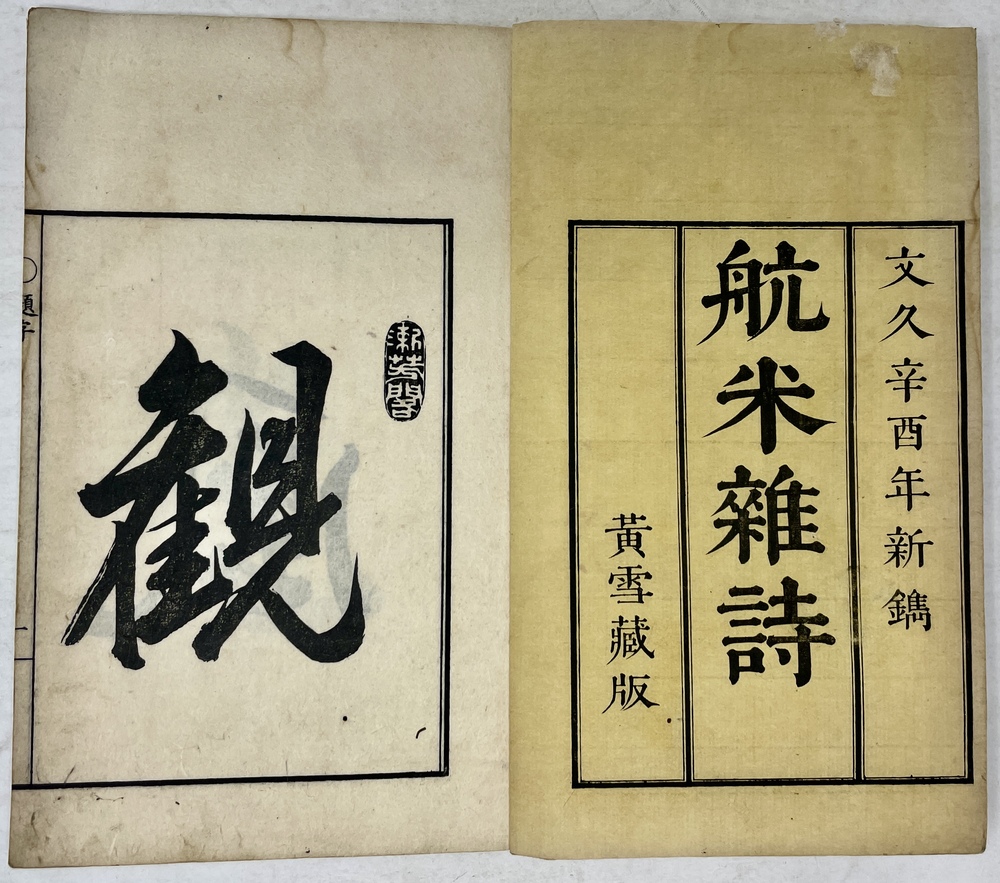 文久辛酉年新鐫
航米雜詩
黃雪藏版
觀
題字
一